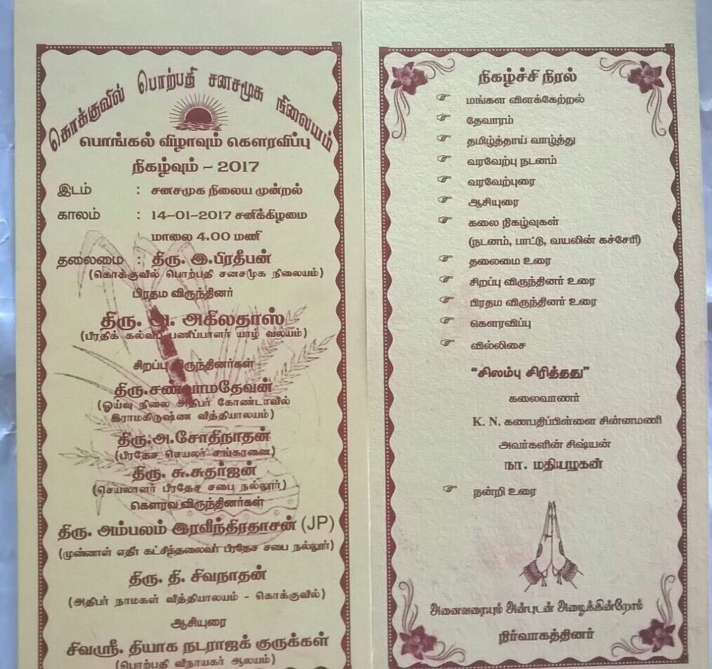 கொக்குவில் பொற்பதி சனசமூக நிலையம்
பொங்கல் விழாவும் கௌரவிப்பு
நிகழ்வும் – 2017
இடம் : சனசமுக நிலைய முன்றல்
காலம் : 14-01-2017 சனிக்கிழமை
மாலை 4.00 மணி
தலைமை : திரு. இ.பிரதீபன்
(கொக்குவில் பொற்பதி சனசமுக நிலையம்)
பிரதம விருந்தினர்
திரு. அ. அகிலதாஸ்
(பிரதிக் கல்விப் பணிப்பாளர் யாழ் வலயம்)
சிறப்பு விருந்தினர்கள்
திரு.சண்வாமதேவன்
(ஓய்வு நிலை அதிபர் கோண்டாவில்
இராமகிருஷ்ண வித்தியாலயம்)
திரு.அ.சோதிநாதன்
(பிரதேச செயலர் சங்கானை)
திரு. சு.சுதர்ஜன்
(செயலாளர் பிரதேச சபை நல்லூர்)
கௌரவ விருந்தினர்கள்
திரு. அம்பலம் இரவீந்திரதாசன் (JP)
(முன்னாள் எதிர் கட்சித்தலைவர் பிரதேச சபை நல்லூர்)
திரு. தி. சிவநாதன்
(அதிபர் நாமகள் வித்தியாலயம் - கொக்குவில்)
ஆசியுரை
சிவஸ்ரீ. தியாக நடராஜக் குருக்கள்
(பொற்பதி வீநாயகர் ஆலயம்)
நிகழ்ச்சி நிரல்
மங்கள விளக்கேற்றல்
தேவாரம்
தமிழ்த்தாய் வாழ்த்து
வரவேற்பு நடனம்
வரவேற்புரை
ஆசியுரை
கலை நிகழ்வுகள்
(நடனம், பாட்டு, வயலின் கச்சேரி)
தலைமை உரை
சிறப்பு விருந்தினர் உரை
பிரதம விருந்தினர் உரை
கௌரவிப்பு
வில்லிசை
"சிலம்பு சிரித்தது"
கலைவாணர்
K. N. கணபதிப்பிள்ளை சின்னமணி
அவர்களின் சிஷ்யன்
நா. மதியழகன்
நன்றி உரை
அனைவரையும் அன்புடன் அழைக்கின்றோம்
நிர்வாகத்தினர்